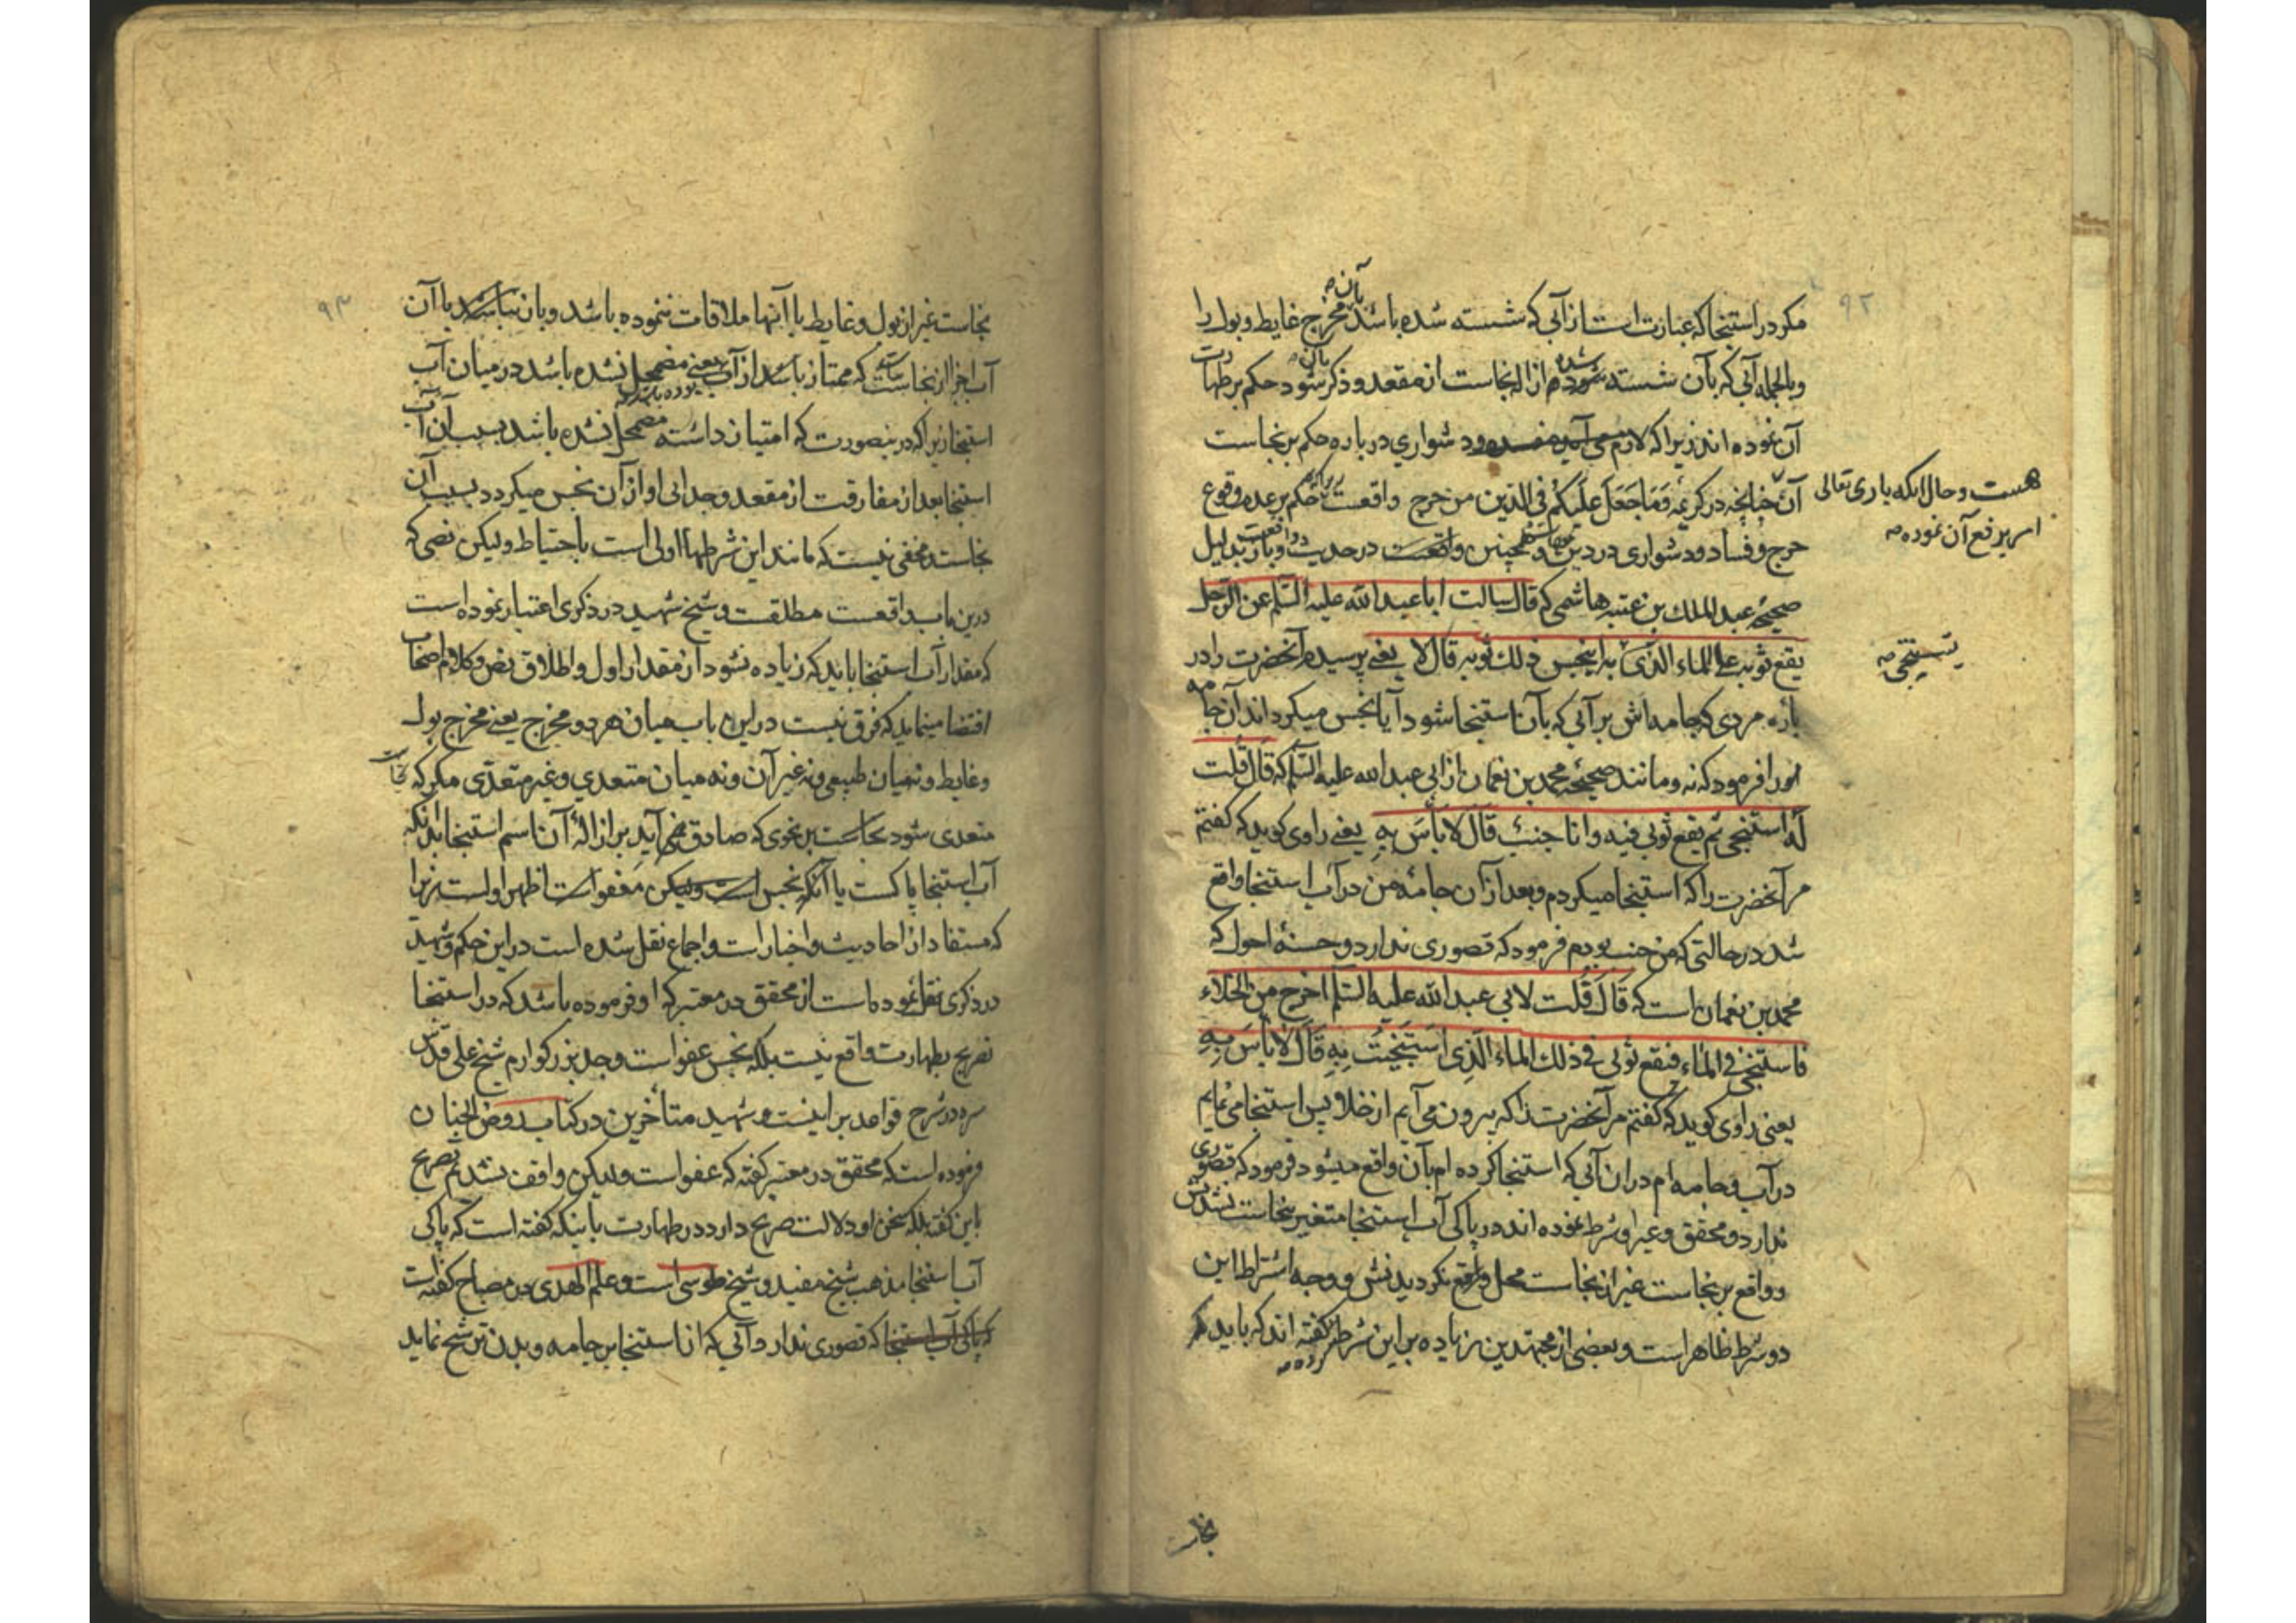 ۹۲
مکر در استنجا که عبارت است از آبی که شسته شده باشد بآن مخرج غایط و بول را
و بالجمله آبی که بآن شسته شده ازاله نجاست از مقعد و ذکر شود حکم بر طهارت
آن نموده اند زیرا که لازم می آید و دشواری در باره حکم بر نجاست
آن چنانچه در کریمه وَمَا جَعَلَ عَلَیْکُمْ فِی الدّین من حرج واقعست حکم بر عدم وقوع
هست و حال انکه باری تعالی
امر بر رفع آن نموده صه
حرج و فساد و دشواری در دین و همچنین واقعست در حدیث بدلیل
صحیحه عبد الملک بن عتبه هاشمی که قال سالت ابا عبد الله علیه السّلم عن الرّجل
یقع ثوبه علی الماء الّذی به اینجس ذلک ثوبه قال لا یعنی پرسیدم آنحضرت را در
یستنجی صه
باره مردی که جامه اش بر آبی که بآن استنجا شود آیا نجس میکرداند آن جامه
او را فرمود که نه و مانند صحیحه محمد بن نعمان از ابی عبد الله علیه السّلم که قالَ قُلت
لَه استنجی ثم یقع ثوبی فیه و انا جنبٌ قالَ لا بَأسَ بِهِ یعنی راوی کوید که کفتم
مر آنحضرت را که استنجا میکردم و بعد از آن جامه من در آب استنجا واقع
شد در حالتی که من جنب بودم فرمود که قصوری ندارد و حسنه احول که
محمد بن نعمان است که قالَ قُلت لابی عبد الله علیه السّلم اخرج من الخلاء
فاستنجی فی الماء فیقع ثوبی فی ذلک الماء الَّذِی استَنجیتُ بِهِ قالَ لا بَأسَ بِهِ
یعنی راوی کوید که کفتم مر آنحضرت را که بیرون می آیم از خلا پس استنجا می نمایم
در آب و جامه ام در ان آبی که استنجا کرده ام بآن واقع میشود فرمود که قصوری
ندارد و محقق و غیر او شرط نموده اند در پاکی آب استنجا متغیر بنجاست نشدنش
و واقع بر نجاست غیر از نجاست محل واقع نکردیدنش و وجه اشتراط این
دو شرط ظاهر است و بعضی از مجتهدین زیاده بر این شرط کفته اند که باید که
نجاست
۹۳
نجاست غیر از بول و غایط با آنها ملاقات ننموده باشد و بان نباشد با آن
آب اجزا از نجاست که ممتاز باشد از آب یعنی مضمحل نشده باشد در میان آب
استنجا زیرا که در ینصورت که امتیاز داشته مضمحل نشده باشد بسبب آن آب
استنجا بعد از مفارقت از مقعد و جدائی او از آن نجس میکردد بسبب آن
نجاست و مخفی نیست که مانند این شرطها اولی است باحتیاط و لیکن نصی که
درین باب واقعست مطلقست و شیخ شهید در ذکری اعتبار نموده است
که مقدار آب استنجا باید که زیاده نشود از مقدار اول و اطلاق نص و کلام اصحاب
اقتضا مینماید که فرق نیست در این باب میان هر دو مخرج یعنی مخرج بول
و غایط و نه میان طبیعی و نه غیر آن و نه میان متعدی و غیر متعدّی مکر که نجاست
متعدی شود بر نحوی که صادق نمی آید بر ازاله آن اسم استنجا بدانکه
آب استنجا پاکست یا آنکه نجس است و لیکن معفو است اظهر اولست زیرا
که مستفاد از احادیث و اخبار است و اجماع نقل شده است در این حکم و شهید
در ذکری نقل نموده است از محقق در معتبر که او فرموده باشد که در استنجا
تصریح بطهارت واقع نیست بلکه نجس عفو است و جد بزرکوارم شیخ علی قدّس
سره در شرح قواعد بر اینست و شهید متأخرین در کتاب روض الجنان
فرموده است که محقق در معتبر کفته که عفو است و لیکن واقف نشدم بتصریح
باین کفته بلکه سخن او دلالت صریح دارد در طهارت باینکه کفته است که پاکی
آب استنجا مذهب شیخ مفید و شیخ طوسی است و علم الهدی در مصباح کفته است
که قصوری ندارد آبی که از استنجا بر جامه و بدن ترشح نماید